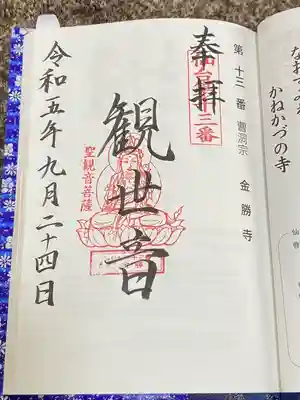 かねかづの寺
第十三番 曹洞宗 金勝寺
奉拝
観世音
聖観音菩薩
令和五年九月二十四日